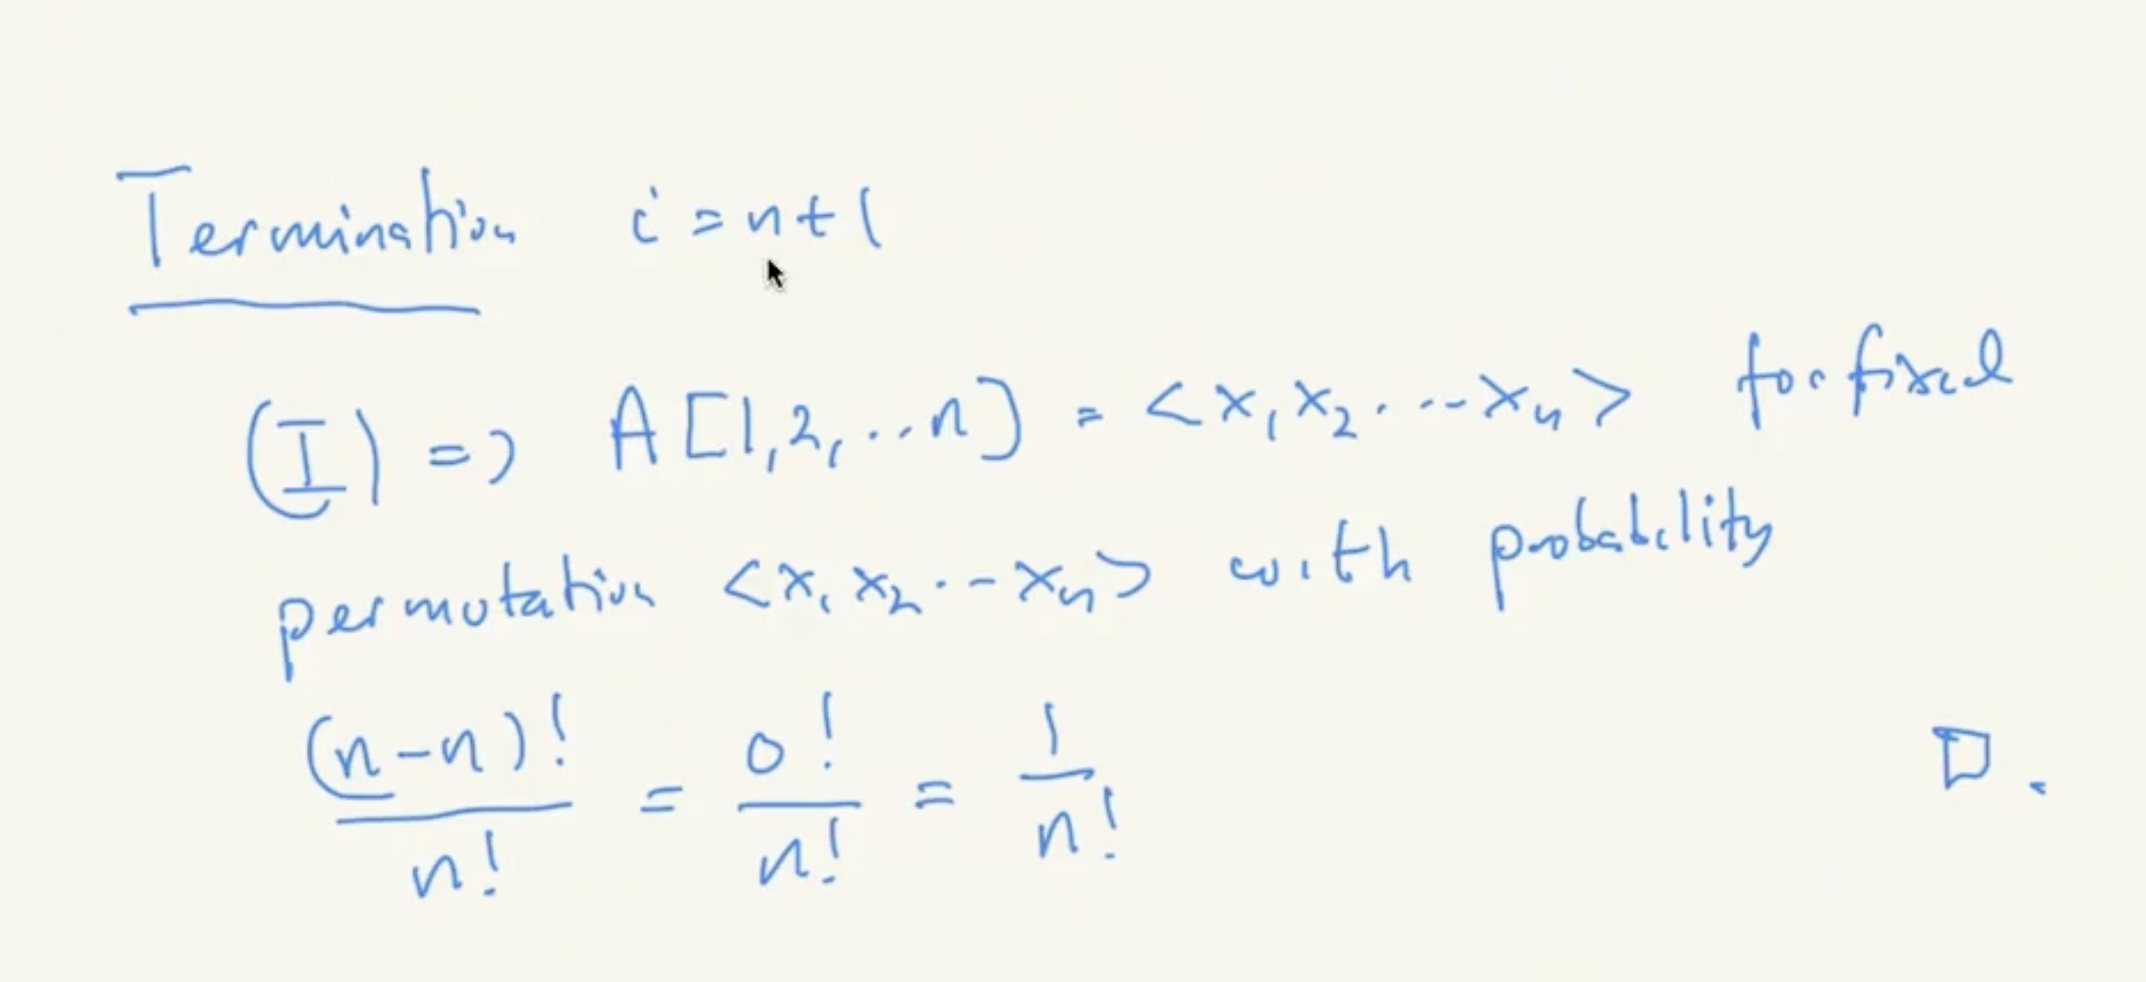 Termination i = n+1
(I) => A[1,2,...n] = <x₁x₂...-x_n> for fixed
permutation <x₁x₂..-x_n> with probability
(n-n)!/n! = 0!/n! = 1/n! □.